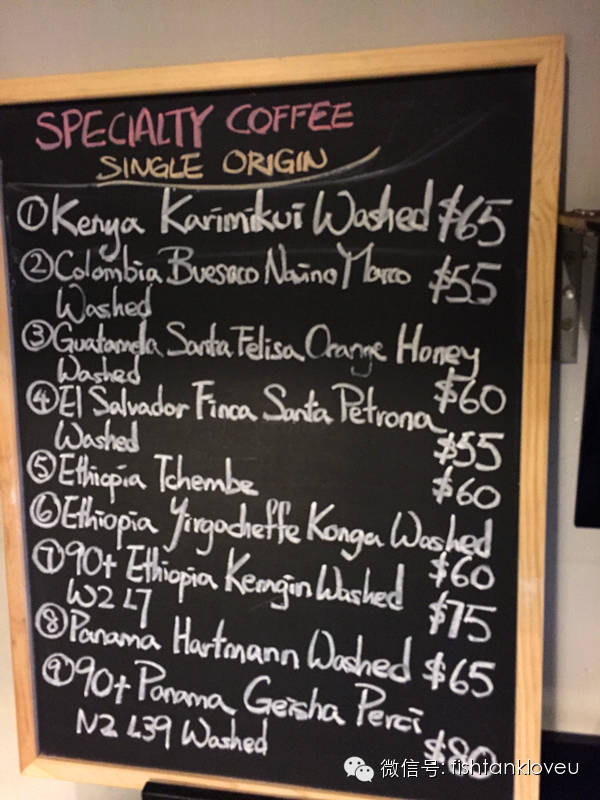 SPECIALTY COFFEE
SINGLE ORIGIN
① Kenya Karimikui Washed $65
② Colombia Buesaco Marco $55
Washed
③ Guatamela Santa Felisa Orange Honey
Washed $60
④ El Salvador Finca Santa Petrona
Washed $55
⑤ Ethiopia Tchembe $60
⑥ Ethiopia Yirgacheffe Konga Washed
$60
⑦ 90+ Ethiopia Washed
W2 L7 $75
⑧ Panama Hartmann Washed $65
⑨ 90+ Panama Geisha Perci
N2 L39 Washed $80
微信号: fishtankloveu